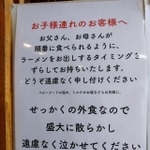 お子様連れのお客様へ
お父さん、お母さんが
順番に食べられるように、
ラーメンをお出しするタイミングを
ずらしてお持ちいたします。
どうぞ遠慮なく申し付けください
せっかくの外食なので
盛大に散らかし
遠慮なく泣かせてください